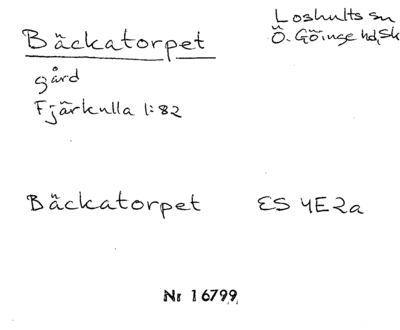 Bäckatorpet
Loshults sn
Ö. Göinge hd, Sk
gård
Fjärkulla 1:82
Bäckatorpet ES 4E2a
Nr 16799